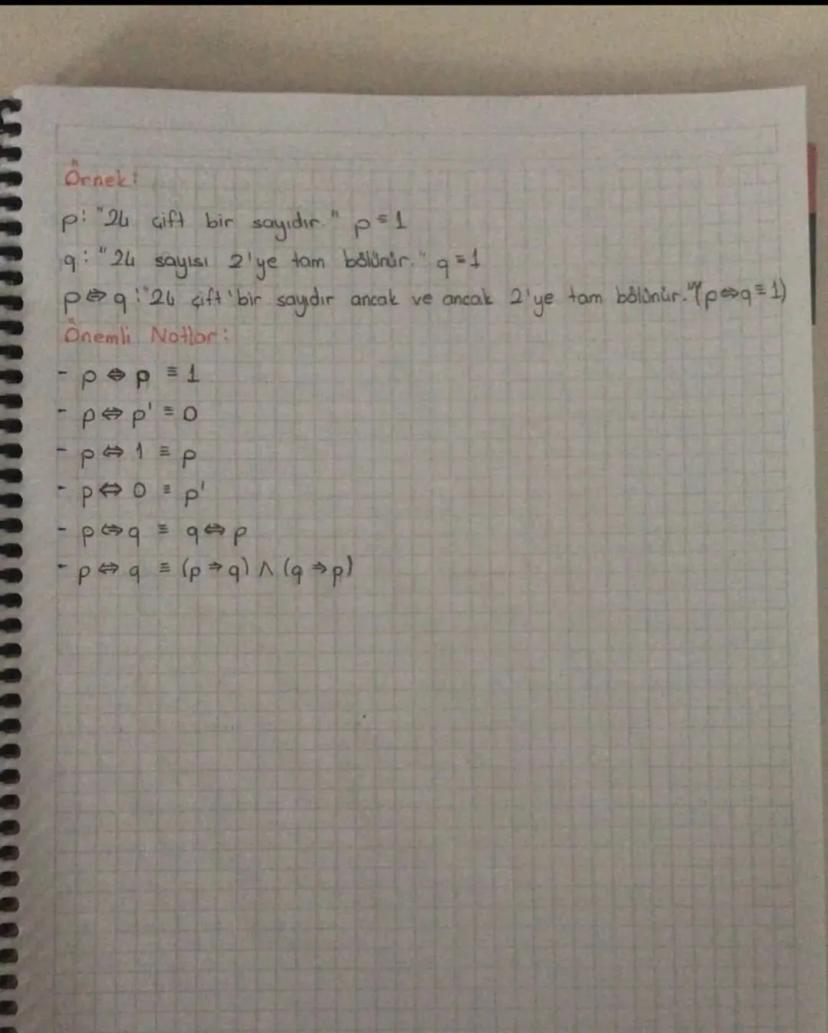 Örnek:
p: "24 çift bir sayıdır." p≡1
q: "24 sayısı 2'ye tam bölünür." q≡1
p⇔q: "24 çift bir saydır ancak ve ancak 2'ye tam bölünür." (p⇔q≡1)
Önemli Notlar:
- p⇔p ≡ 1
- p⇔p' ≡ 0
- p⇔1 ≡ p
- p⇔0 ≡ p'
- p⇔q ≡ q⇔p
- p⇔q ≡ (p⇒q) ∧ (q⇒p)